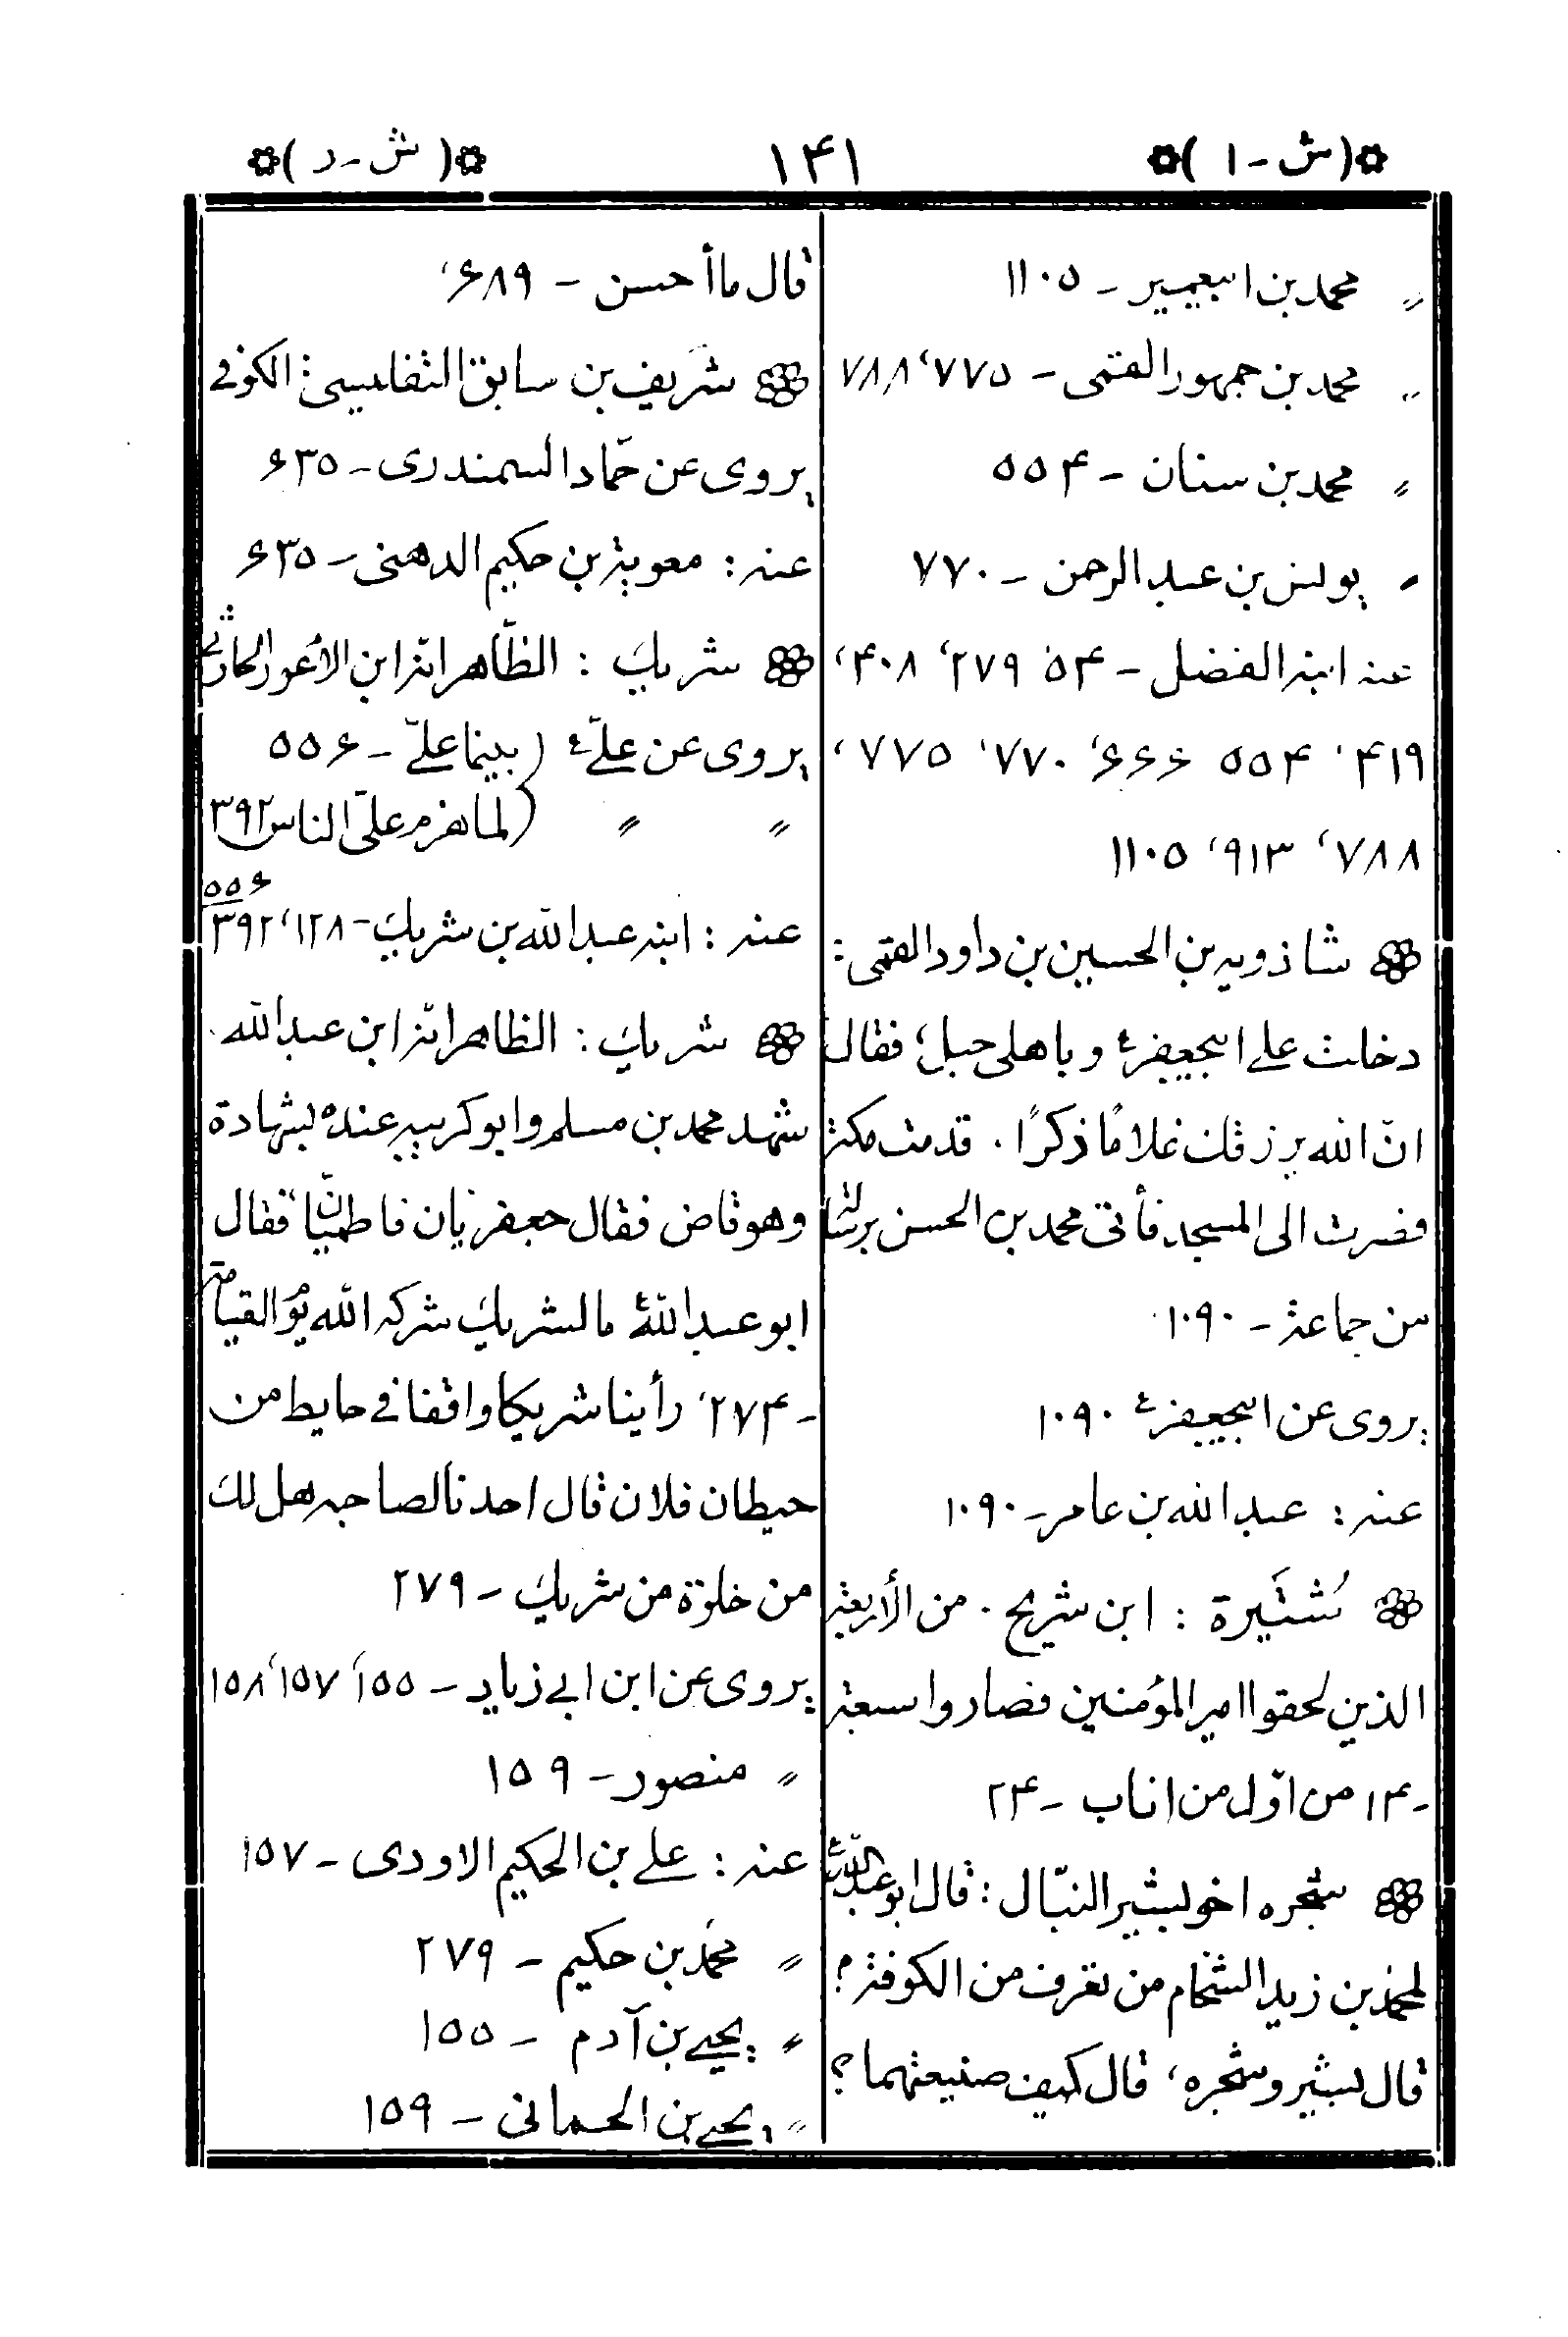 (ش-ا) ۱۴۱ (ش-ر)
〃 محمد بن ابیعمیر - ۱۱۰۵
〃 محمد بن جمهور القمی - ۷۷۵، ۷۸۸
〃 محمد بن سنان - ۵۵۴
〃 یونس بن عبد الرحمن - ۷۷۰
عنه ابنه الفضل - ۵۴، ۲۷۹، ۴۰۸،
۴۱۹، ۵۵۴ ۶۶۶، ۷۷۰، ۷۷۵،
۷۸۸، ۹۱۳، ۱۱۰۵
شاذویه بن الحسین بن داود القمی:
دخلت علی ابیجعفرؑ و باهلی حبل، فقال
انّ الله یرزقك غلامًا ذکرًا. قدمت مکة
فصرت الی المسجد فأتی محمد بن الحسن برسالة
من جماعة - ۱۰۹۰
یروی عن ابیجعفرؑ ۱۰۹۰
عنه: عبد الله بن عامر - ۱۰۹۰
شُتَیرة: ابن شریح. من الأربعة
الذین لحقوا امیر المؤمنین فصاروا سبعة
- ۱۴ من اوّل من اناب - ۲۴
شجره اخو لبشیر النبّال: قال ابو عبد اللهؑ
لمحمد بن زید الشحّام من تعرف من الکوفة؟
قال لبشیر و شجره، قال کیف صنیعتهما؟
قال ما أحسن - ۶۸۹،
شریف بن سابق التفلیسی: الکوفی
یروی عن حمّاد السمندری - ۶۳۵
عنه: معویة بن حکیم الدهنی - ۶۳۵
شریك: الظّاهر انّه ابن الاعور الحارثی
یروی عن علیّؑ (بینما علیّ - ۵۵۶
〃 〃 (لما هزم علیّ الناس ۳۹۲
عنه: ابنه عبد الله بن شریك - ۱۲۸، ۳۹۲ ۵۵۶
شریك: الظاهر انّه ابن عبد الله.
شهد محمد بن مسلم و ابو کریبه عنده بشهادة
و هو قاض فقال جعفریان فاطمیّان فقال
ابو عبد اللهؑ ما لشریك شرکه الله یوم القیامة
- ۲۷۴، رأینا شریکا واقفا فی حایط من
حیطان فلان قال احدنا لصاحبه هل لك
من خلوة من شریك - ۲۷۹
یروی عن ابن ابی زیاد - ۱۵۵، ۱۵۷، ۱۵۸
〃 منصور - ۱۵۹
عنه: علی بن الحکیم الاودی - ۱۵۷
〃 محمّد بن حکیم - ۲۷۹
〃 یحیی بن آدم - ۱۵۵
〃 یحیی بن الحمانی - ۱۵۹